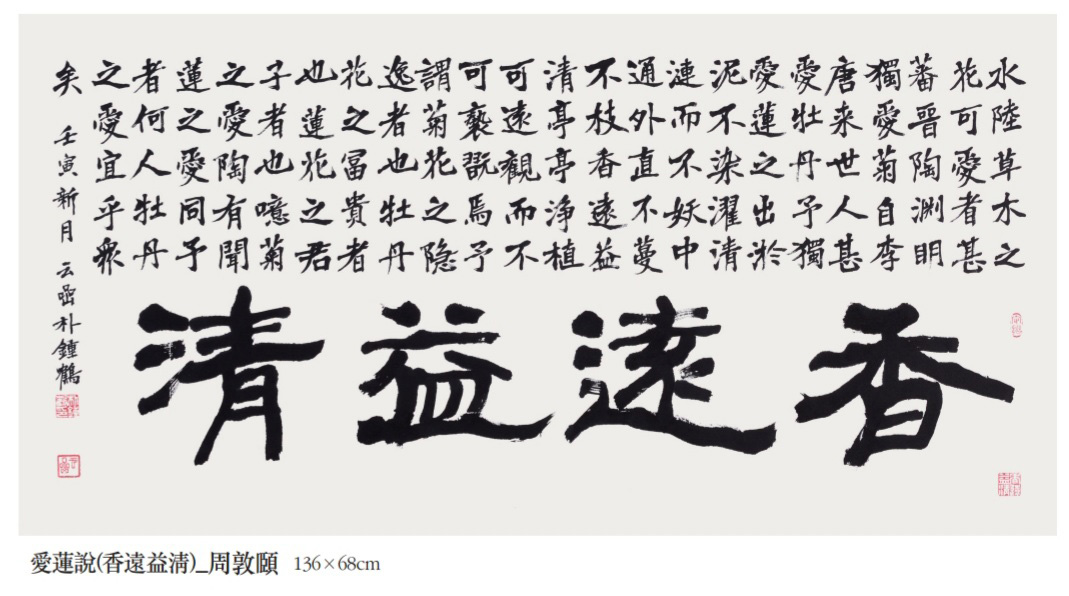 水陸草木之
花可愛者甚
蕃晉陶渊明
獨愛菊自李
唐来世人甚
愛牡丹予獨
愛蓮之出淤
泥不染濯清
漣而不妖中
通外直不蔓
不枝香遠益
清亭亭淨植
可遠觀而不
可褻翫焉予
謂菊花之隐
逸者也牡丹
花之冨貴者
也蓮花之君
子者也噫菊
之愛陶有聞
蓮之愛同予
者何人牡丹
之愛宜乎衆
矣 壬寅新月 云嵒朴鍾鶴
香遠益清
愛蓮說(香遠益淸)_周敦頤 136×68cm